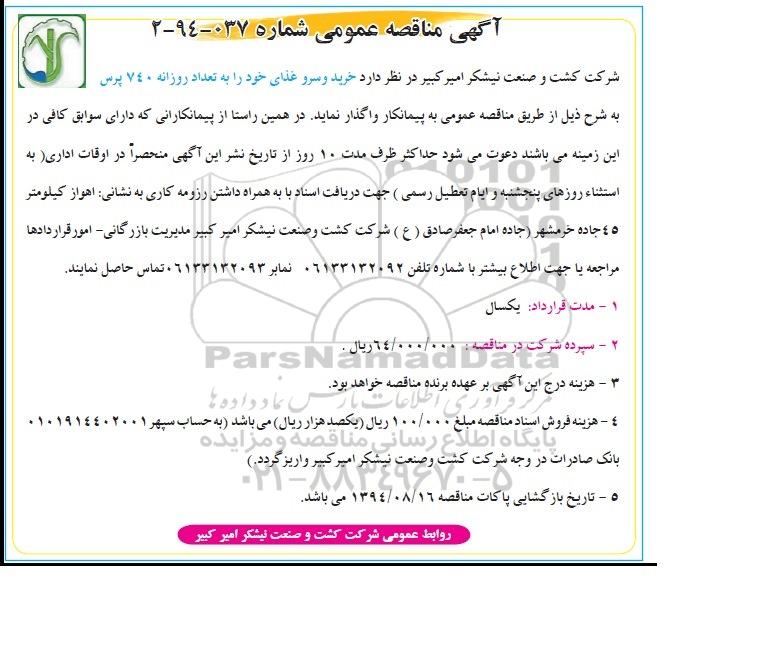 آگهی مناقصه عمومی شماره ۰۳۷-۹٤-۲
شرکت کشت و صنعت نیشکر امیرکبیر در نظر دارد خرید وسرو غذای خود را به تعداد روزانه ۷٤۰ پرس
به شرح ذیل از طریق مناقصه عمومی به پیمانکار واگذار نماید. در همین راستا از پیمانکارانی که دارای سوابق کافی در
این زمینه می باشند دعوت می شود حداکثر ظرف مدت ۱۰ روز از تاریخ نشر این آگهی منحصراً در اوقات اداری( به
استثناء روزهای پنجشنبه و ایام تعطیل رسمی ) جهت دریافت اسناد با به همراه داشتن رزومه کاری به نشانی: اهواز کیلومتر
٤٥جاده خرمشهر (جاده امام جعفرصادق ( ع ) شرکت کشت وصنعت نیشکر امیر کبیر مدیریت بازرگانی- امورقراردادها
مراجعه یا جهت اطلاع بیشتر با شماره تلفن ۰٦۱۳۳۱۳۲۰۹۲ نمابر ۰٦۱۳۳۱۳۲۰۹۳تماس حاصل نمایند.
۱ - مدت قرارداد: یکسال
۲ - سپرده شرکت در مناقصه : ٦٤/۰۰۰/۰۰۰ریال .
ParsNamadData
۳ - هزینه درج این آگهی بر عهده برنده مناقصه خواهد بود.
مرکز فرآوری اطلاعات پارس نماد داده ها
٤ - هزینه فروش اسناد مناقصه مبلغ ۱۰۰/۰۰۰ ریال (یکصد هزار ریال) می باشد (به حساب سپهر ۰۱۰۱۹۱٤٤۰۲۰۰۱
پایگاه اطلاع رسانی مناقصه و مزایده
بانک صادرات در وجه شرکت کشت وصنعت نیشکر امیرکبیر واریزگردد.)
۰۲۱-۸۸۳٤۹٦۷۰-۵
۵ - تاریخ بازگشایی پاکات مناقصه ۱۳۹٤/۰۸/۱٦ می باشد.
روابط عمومی شرکت کشت و صنعت نیشکر امیر کبیر